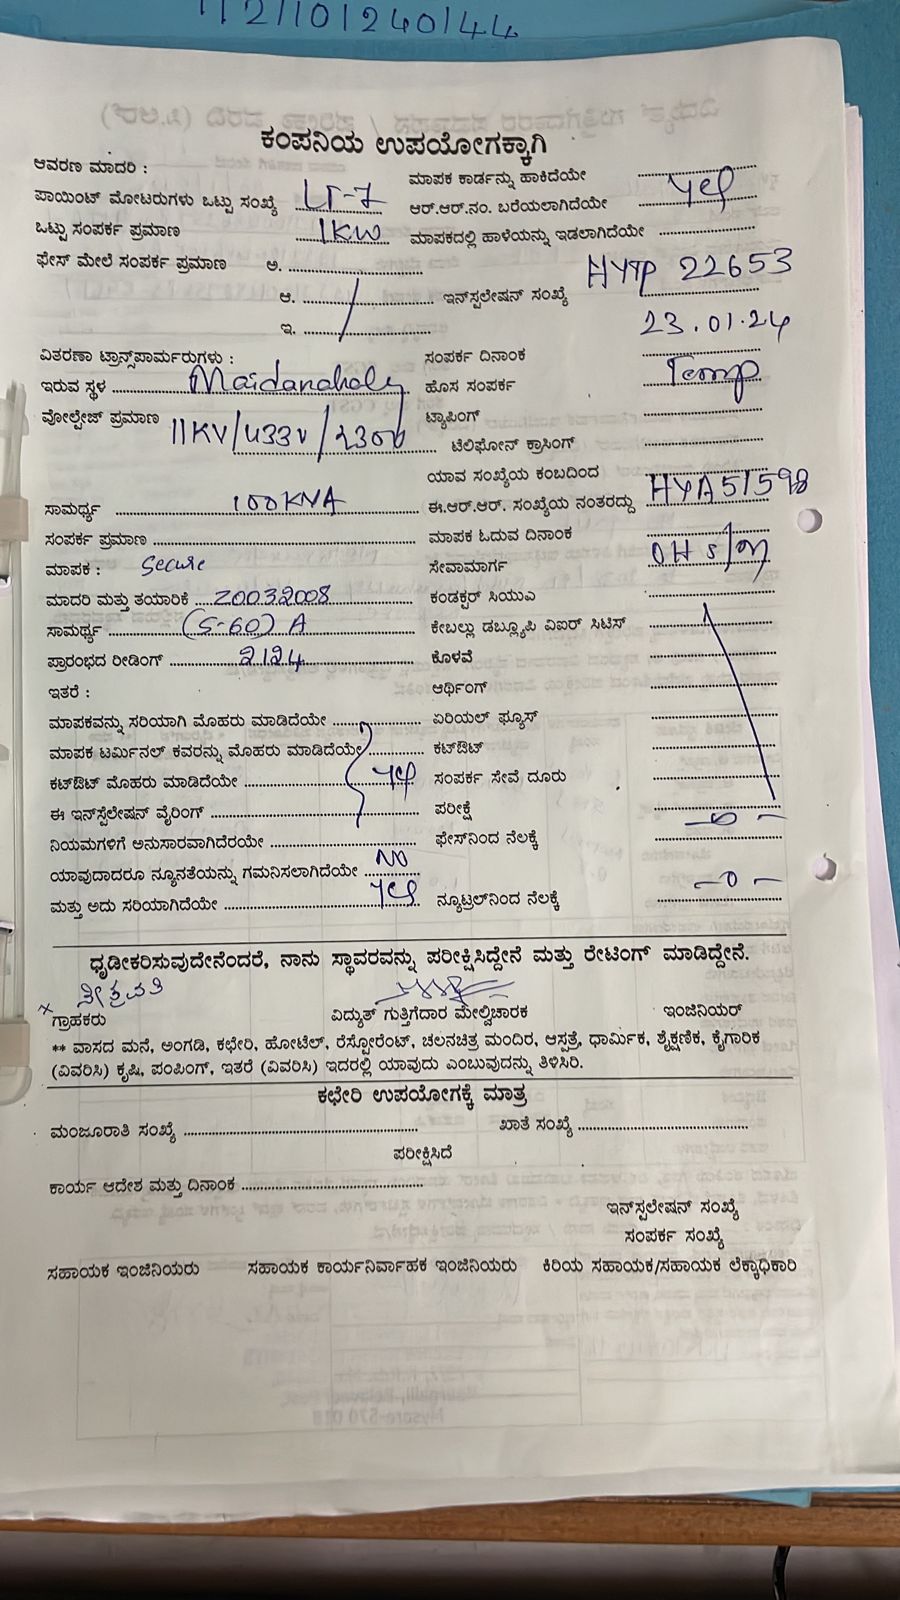 1121101240144
ಕಂಪನಿಯ ಉಪಯೋಗಕ್ಕಾಗಿ
ಆವರಣ ಮಾದರಿ : ಮಾಪಕ ಕಾರ್ಡನ್ನು ಹಾಕಿದೆಯೇ
ಪಾಯಿಂಟ್ ಮೋಟರುಗಳು ಒಟ್ಟು ಸಂಖ್ಯೆ LT-7 ಆರ್.ಆರ್.ನಂ. ಬರೆಯಲಾಗಿದೆಯೇ yes
ಒಟ್ಟು ಸಂಪರ್ಕ ಪ್ರಮಾಣ 1KW ಮಾಪಕದಲ್ಲಿ ಹಾಳೆಯನ್ನು ಇಡಲಾಗಿದೆಯೇ
ಫೇಸ್ ಮೇಲೆ ಸಂಪರ್ಕ ಪ್ರಮಾಣ ಅ.
ಆ. ಇನ್‌ಸ್ಟಲೇಷನ್ ಸಂಖ್ಯೆ HYTP 22653
ಇ.
ವಿತರಣಾ ಟ್ರಾನ್ಸ್‌ಪಾರ್ಮರುಗಳು : ಸಂಪರ್ಕ ದಿನಾಂಕ 23.01.24
ಇರುವ ಸ್ಥಳ Maidanahaly ಹೊಸ ಸಂಪರ್ಕ Temp
ವೋಲ್ಟೇಜ್ ಪ್ರಮಾಣ 11KV/433V/230V ಟ್ಯಾಪಿಂಗ್
ಟೆಲಿಫೋನ್ ಕ್ರಾಸಿಂಗ್
ಯಾವ ಸಂಖ್ಯೆಯ ಕಂಬದಿಂದ
ಸಾಮರ್ಥ್ಯ 100KVA ಈ.ಆರ್.ಆರ್. ಸಂಖ್ಯೆಯ ನಂತರದ್ದು HYA51598
ಸಂಪರ್ಕ ಪ್ರಮಾಣ ಮಾಪಕ ಓದುವ ದಿನಾಂಕ
ಮಾಪಕ : Secure ಸೇವಾಮಾರ್ಗ OH S/m
ಮಾದರಿ ಮತ್ತು ತಯಾರಿಕೆ Z0032008 ಕಂಡಕ್ಟರ್ ಸಿಯುಎ
ಸಾಮರ್ಥ್ಯ (5-60) A ಕೇಬಲ್ಲು ಡಬ್ಲ್ಯೂಪಿ ವಿಐರ್ ಸಿಟಿಸ್
ಪ್ರಾರಂಭದ ರೀಡಿಂಗ್ 2124 ಕೊಳವೆ
ಇತರೆ : ಆರ್ಥಿಂಗ್
ಮಾಪಕವನ್ನು ಸರಿಯಾಗಿ ಮೊಹರು ಮಾಡಿದೆಯೇ ಏರಿಯಲ್ ಫ್ಯೂಸ್
ಮಾಪಕ ಟರ್ಮಿನಲ್ ಕವರನ್ನು ಮೊಹರು ಮಾಡಿದೆಯೇ ಕಟ್‌ಔಟ್
ಕಟ್‌ಔಟ್ ಮೊಹರು ಮಾಡಿದೆಯೇ yes ಸಂಪರ್ಕ ಸೇವೆ ದೂರು
ಈ ಇನ್‌ಸ್ಟೆಲೇಷನ್ ವೈರಿಂಗ್ ಪರೀಕ್ಷೆ
ನಿಯಮಗಳಿಗೆ ಅನುಸಾರವಾಗಿದೆರಯೇ ಫೇಸ್‌ನಿಂದ ನೆಲಕ್ಕೆ -0-
ಯಾವುದಾದರೂ ನ್ಯೂನತೆಯನ್ನು ಗಮನಿಸಲಾಗಿದೆಯೇ NO
ಮತ್ತು ಅದು ಸರಿಯಾಗಿದೆಯೇ yes ನ್ಯೂಟ್ರಲ್‌ನಿಂದ ನೆಲಕ್ಕೆ -0-
ಧೃಡೀಕರಿಸುವುದೇನೆಂದರೆ, ನಾನು ಸ್ಥಾವರವನ್ನು ಪರೀಕ್ಷಿಸಿದ್ದೇನೆ ಮತ್ತು ರೇಟಿಂಗ್ ಮಾಡಿದ್ದೇನೆ.
ಗ್ರಾಹಕರು ವಿದ್ಯುತ್ ಗುತ್ತಿಗೆದಾರ ಮೇಲ್ವಿಚಾರಕ ಇಂಜಿನಿಯರ್
** ವಾಸದ ಮನೆ, ಅಂಗಡಿ, ಕಛೇರಿ, ಹೋಟೆಲ್, ರೆಸ್ಟೋರೆಂಟ್, ಚಲನಚಿತ್ರ ಮಂದಿರ, ಆಸ್ಪತ್ರೆ, ಧಾರ್ಮಿಕ, ಶೈಕ್ಷಣಿಕ, ಕೈಗಾರಿಕ
(ವಿವರಿಸಿ) ಕೃಷಿ, ಪಂಪಿಂಗ್, ಇತರೆ (ವಿವರಿಸಿ) ಇದರಲ್ಲಿ ಯಾವುದು ಎಂಬುವುದನ್ನು ತಿಳಿಸಿರಿ.
ಕಛೇರಿ ಉಪಯೋಗಕ್ಕೆ ಮಾತ್ರ
ಮಂಜೂರಾತಿ ಸಂಖ್ಯೆ ಖಾತೆ ಸಂಖ್ಯೆ
ಪರೀಕ್ಷಿಸಿದೆ
ಕಾರ್ಯ ಆದೇಶ ಮತ್ತು ದಿನಾಂಕ
ಇನ್‌ಸ್ಟಲೇಷನ್ ಸಂಖ್ಯೆ
ಸಂಪರ್ಕ ಸಂಖ್ಯೆ
ಸಹಾಯಕ ಇಂಜಿನಿಯರು ಸಹಾಯಕ ಕಾರ್ಯನಿರ್ವಾಹಕ ಇಂಜಿನಿಯರು ಕಿರಿಯ ಸಹಾಯಕ/ಸಹಾಯಕ ಲೆಕ್ಕಾಧಿಕಾರಿ